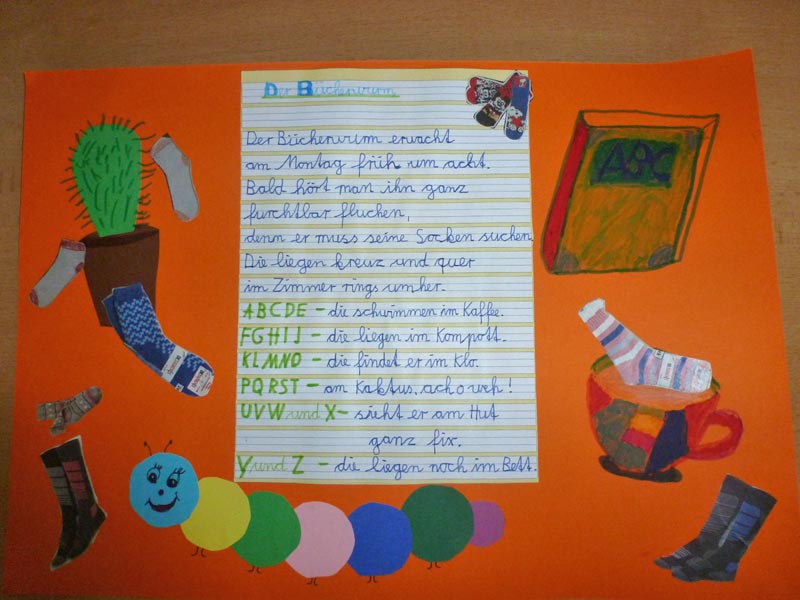 Der Bücherwurm
Der Bücherwurm erwacht
am Montag früh um acht.
Bald hört man ihn ganz
furchtbar fluchen,
denn er muss seine Socken suchen.
Die liegen kreuz und quer
im Zimmer rings umher.
ABCDE - die schwimmen im Kaffee.
FGHIJ - die liegen im Kompott.
KLMNO - die findet er im Klo.
PQRST - am Kaktus, ach o weh!
UVW und X - sieht er am Hut
ganz fix.
Y und Z - die liegen noch im Bett.
ABC